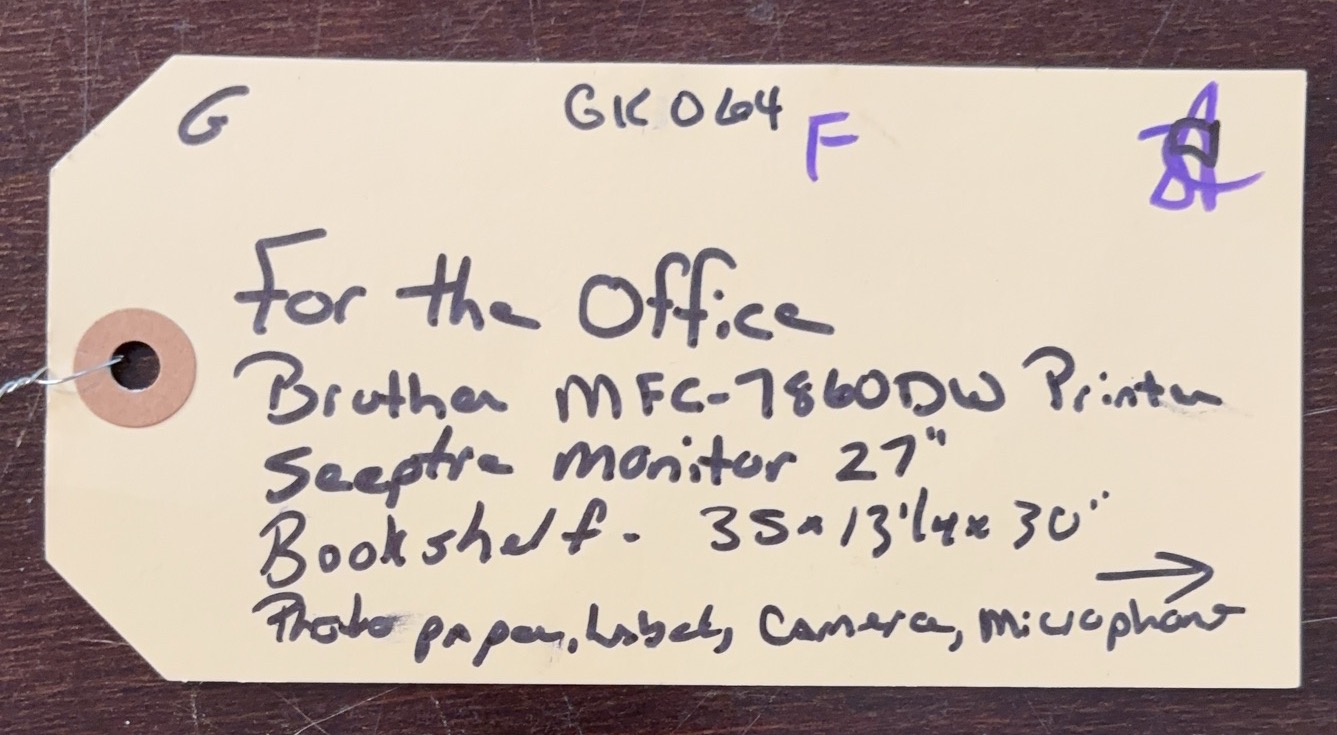 G GK064 F
For the Office
Brother MFC-7860DW Printer
Sceptre Monitor 27"
Bookshelf. 35x13 1/4x30"
Photo paper, Labels, Camera, Microphone